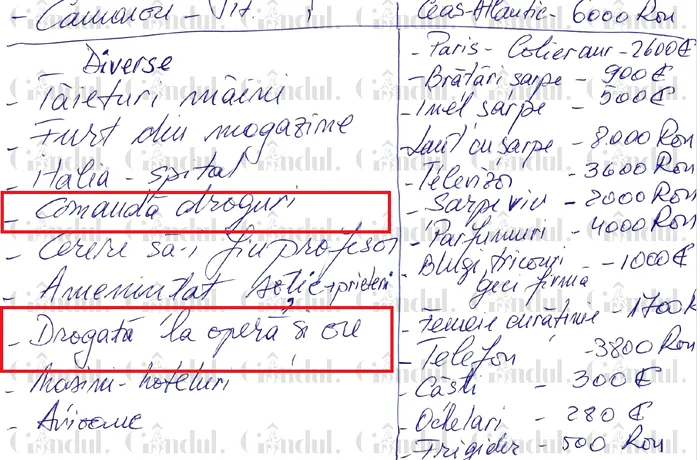 Diverse
- Tăieturi mâini
- Furt din magazine
- Italia - spital
- Comandă droguri
- Cerere să-i fiu profesor
- Amenințat soție + prieteni
- Drogată la operă și
- Mașini - hoteluri
Ceas Atlantic - 6000 Ron
- Paris - Colier aur - 2600 €
- Brățări șarpe - 900 €
- Inel șarpe - 500 €
- Lanț cu șarpe - 8.000 Ron
- Televizor - 3600 Ron
- Șarpe viu - 2000 Ron
- Parfumuri - 4000 Ron
- Blugi tricouri - 1000 €
geci firma
- Femeie curățenie - 1700
- Telefon - 3800 Ron
- Căști - 300 €
- Ochelari - 280 €
- Frigider - 500 Ron
Gândul.